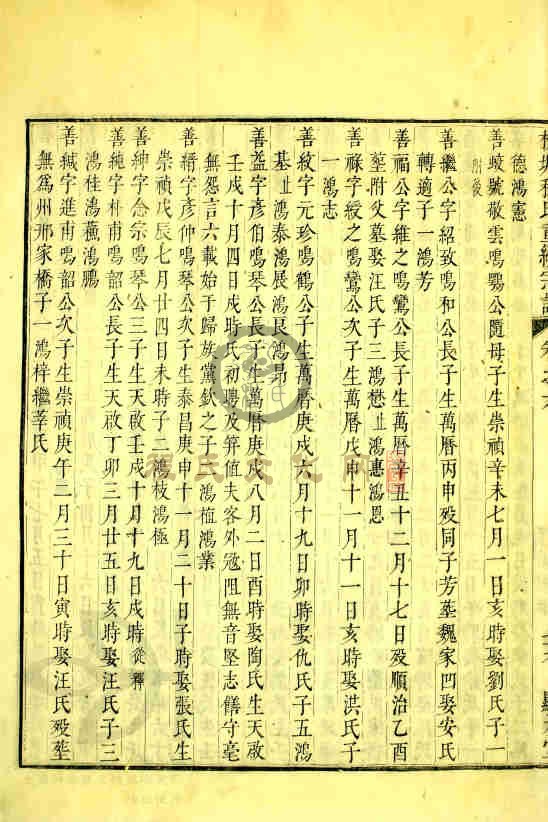 德鴻憲
善蛟號敬雲鳴鸚公隨母子生崇禎辛未七月一日亥時娶劉氏子一
附後
善繼公字紹致鳴和公長子生萬曆丙申歿同子芳塟魏家凹娶安氏
轉適子一鴻芳
善福公字維之鳴鸞公長子生萬曆辛丑十二月十七日歿順治乙酉
塟附父墓娶汪氏子三鴻懋止鴻惠鴻恩
善祿字綬之鳴鸞公次子生萬曆戊申十一月十一日亥時娶洪氏子
一鴻志
善紋字元珍鳴鶴公子生萬曆庚戌六月十九日卯時娶仇氏子五鴻
基止鴻泰鴻展鴻艮鴻昴
善盋字彥伯鳴琴公長子生萬曆庚戌八月二日酉時娶陶氏生天啟
壬戌十月四日戌時氏初聘及笄值夫客外寇阻無音堅志饍守毫
無怨言六載始于歸族黨欽之子二鴻植鴻業
善縉字彥仲鳴琴公次子生泰昌庚申十一月二十日子時娶張氏生
崇禎戊辰七月廿四日未時子二鴻枝鴻極
善紳字念宗鳴琴公三子生天啟壬戌十月十九日戌時從釋
善純字朴甫鳴韶公長子生天啟丁卯三月廿五日亥時娶汪氏子三
鴻桂鴻蘓鴻鵬
善緘字進甫鳴韶公次子生崇禎庚午二月三十日寅時娶汪氏歿塟
無為州邢家橋子一鴻梓繼莘氏